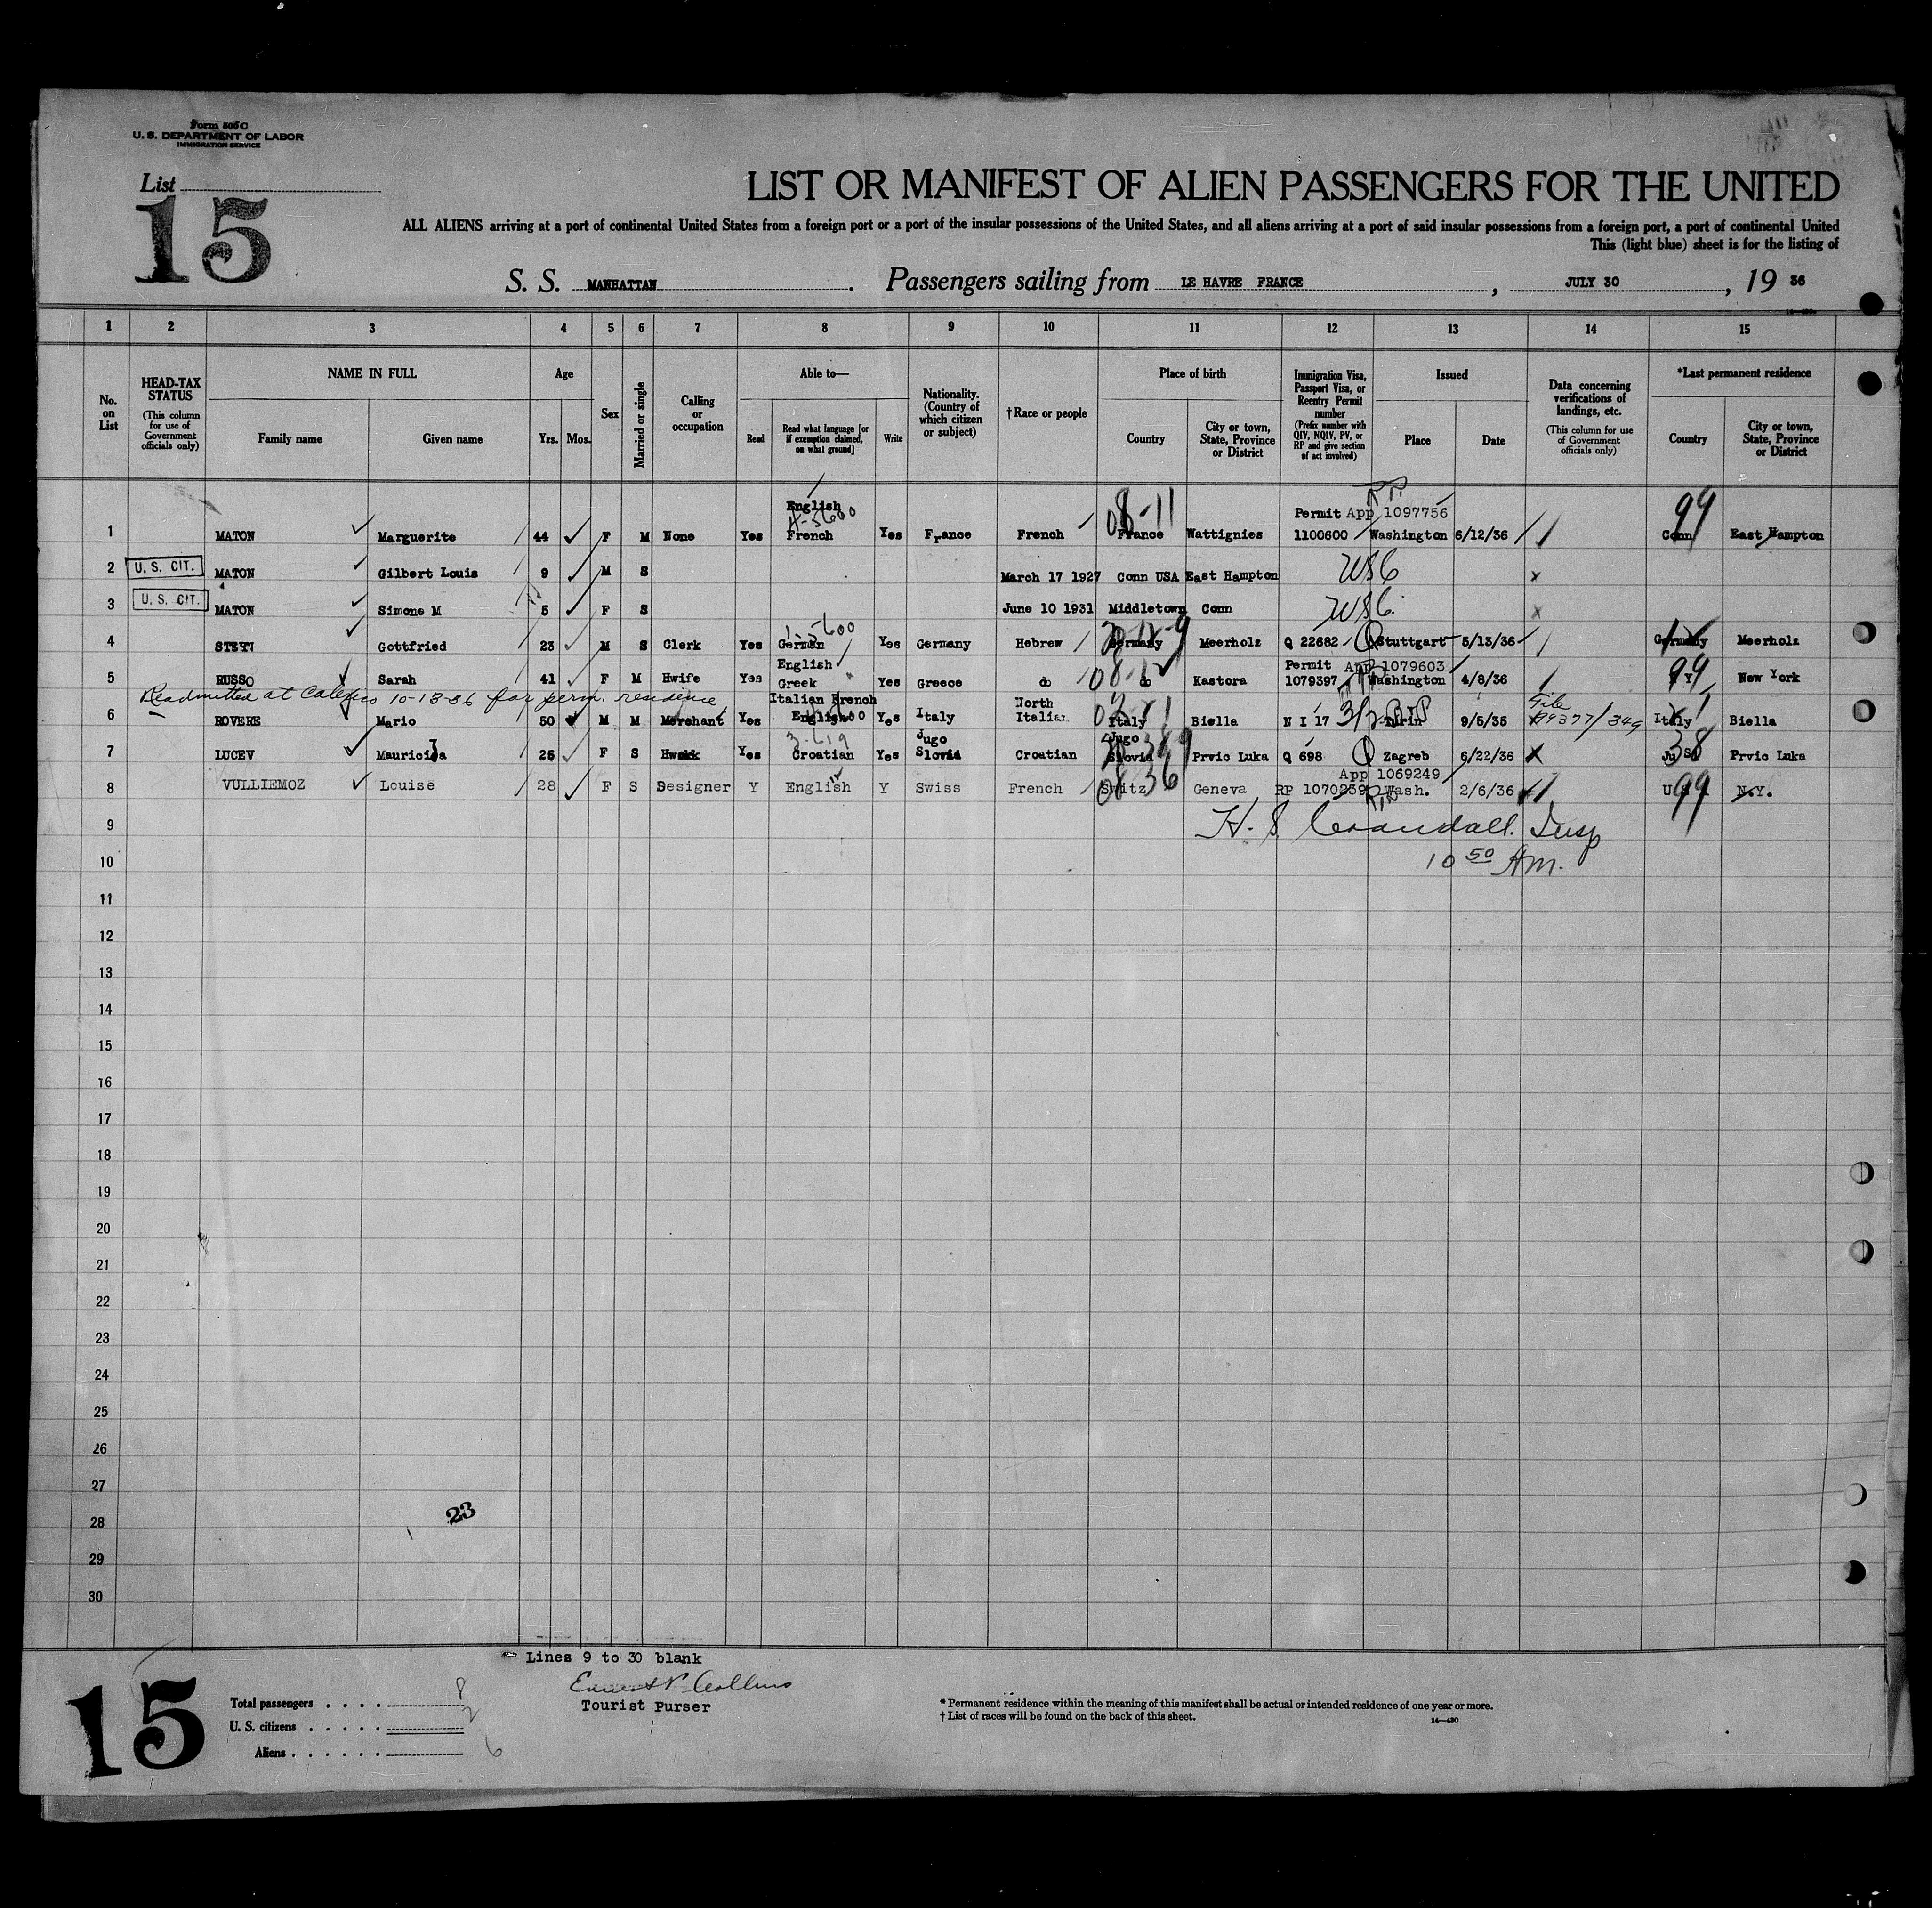 Form 506 C
U. S. DEPARTMENT OF LABOR
IMMIGRATION SERVICE
List
15
LIST OR MANIFEST OF ALIEN PASSENGERS FOR THE UNITED
ALL ALIENS arriving at a port of continental United States from a foreign port or a port of the insular possessions of the United States, and all aliens arriving at a port of said insular possessions from a foreign port, a port of continental United
This (light blue) sheet is for the listing of
S. S. MANHATTAN . Passengers sailing from LE HAVRE FRANCE , JULY 30 , 19 36
1 2 3 4 5 6 7 8 9 10 11 12 13 14 15
No. on List
HEAD-TAX STATUS (This column for use of Government officials only)
NAME IN FULL
Family name
Given name
Age
Yrs. Mos.
Sex
Married or single
Calling or occupation
Able to—
Read
Read what language [or if exemption claimed, on what ground]
Write
Nationality. (Country of which citizen or subject)
† Race or people
Place of birth
Country
City or town, State, Province or District
Immigration Visa, Passport Visa, or Reentry Permit number (Prefix number with QIV, NQIV, PV, or RP and give section of act involved)
Issued
Place
Date
Data concerning verifications of landings, etc. (This column for use of Government officials only)
*Last permanent residence
Country
City or town, State, Province or District
English Permit App 1097756
1 MATON Marguerite 44 F M None Yes French Yes France French 08-11 France Wattignies 1100600 Washington 6/12/36 99 Conn East Hampton
2 U. S. CIT. MATON Gilbert Louis 9 M S March 17 1927 Conn USA East Hampton USC x
3 U. S. CIT. MATON Simone M 5 F S June 10 1931 Middletown Conn USC x
4 Gottfried 23 M S Clerk Yes German Yes Germany Hebrew Germany Meerholz Q 22682 Stuttgart 5/13/36 Germany Meerholz
English Permit App 1079603
5 RUSSO Sarah 41 F M Hwife Yes Greek Yes Greece do do Kastora 1079397 Washington 4/8/36 99 N Y New York
Readmitted at Calexico 10-13-36 for perm. residence
Italian French North File
6 ROVERE Mario 50 M M Merchant Yes English Yes Italy Italian Italy Biella N I 17 Turin 9/5/35 99377/349 Italy Biella
Jugo Jugo
7 LUCEV 25 F S Yes Croatian Yes Slovia Croatian Slovia Prvic Luka Q 698 Zagreb 6/22/36 x 38 Prvic Luka
App 1069249
8 VULLIEMOZ Louise 28 F S Designer Y English Y Swiss French 08 36 Switz Geneva RP 1070239 Wash. 2/6/36 99 U S N.Y.
9 H. S. Crandall. Insp
10 10 50 Am.
11
12
13
14
15
16
17
18
19
20
21
22
23
24
25
26
27
23
28
29
30
Lines 9 to 30 blank
Ernest Collins
Tourist Purser
15
Total passengers . . . . 8
U. S. citizens . . . . . 2
Aliens . . . . . . 6
* Permanent residence within the meaning of this manifest shall be actual or intended residence of one year or more.
† List of races will be found on the back of this sheet.
14—430